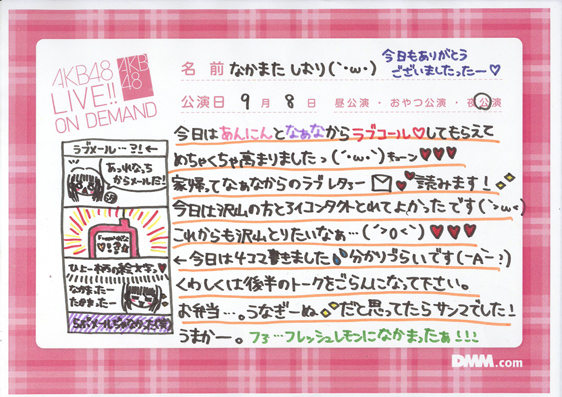 AKB48
LIVE!!
ON DEMAND
AKB
48
名 前 なかまた しおり(`・ω・)
今日もありがとう
ございましたったー♡
公演日 9 月 8 日 昼公演・おやつ公演・夜公演
今日はあんにんとなぁなからラブコール♡してもらえて
めちゃくちゃ高まりましたっ(´・ω・`)キューン♥♥♥
家帰ってなぁなからのラブレター 読みます!
今日は沢山の方とアイコンタクトとれてよかったです(`>ω<)
これからも沢山とりたいなぁ…(´>0<`)♥♥♥
←今日は4コマ書きました 分かりづらいです(-A-?)
くわしくは後半のトークをごらんになって下さい。
お弁当…。うなぎーぬ だと思ってたらサンマでした!
うまかー。フ3…フレッシュレモンになかまったぁ!!!
ラブメール…?!←
あっれなっち
からメールだ!
ひよこ柄の絵文字っ♥
なかまったー
たかまったー
らぶメールちゃなかった(笑)
DMM.com